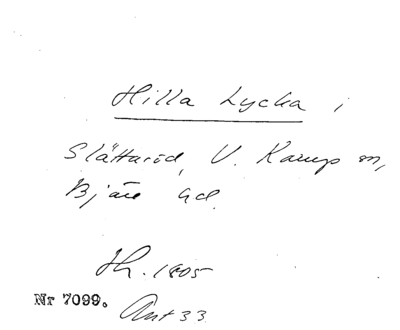 Hilla Lycka i
Slättaröd, V. Karup sn,
Bjäre hd.
Sk. 1805
Nr 7099.
Ant 33